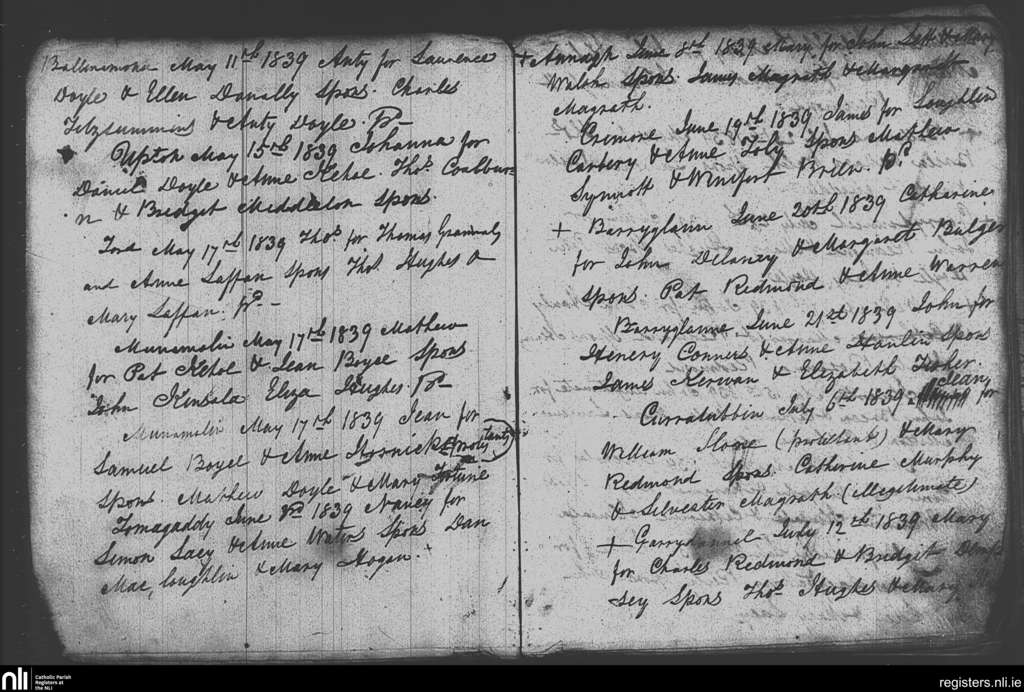 Ballinamona May 11th 1839 Anty for Laurence
Doyle & Ellen Donally Spons. Charles
Fitzsummins & Anty Doyle. Pd
Upton May 15th 1839 Johanna for
Daniel Doyle & Anne Kehoe. Thos. Coalbur
n & Bridget Middleton Spons.
Ford May 17th 1839 Thos for Thomas
and Anne Laffan Spons Thos. Hughes &
Mary Laffan. Pd
Munamolin May 17th 1839 Mathew
for Pat Kehoe & Jean Boyse Spons
John Kinsala Eliza Hughes. Pd
Munamolin May 17th 1839 Jean for
Samuel Boyel & Anne Hornick (protestants)
Spons. Mathew Doyle & Mary Fortune
Tomagaddy June 1839 Nancy for
Simon Lacy & Anne Waters Spons Dan
Mac,loughlin & Mary Hogan.
+ Annagh June 8th 1839 Mary for John & Mary
Walsh Spons. James Magrath & Margaret
Magrath.
Crimore June 19th 1839 James for Loughlin
Carbery & Anne Foly Spons Mathew
Synnott & Winifort Brien. Pd
+ Barryglann June 20th 1839 Catharine
for John Delanzy & Margaret Bulger
Spons. Pat Redmond & Anne Warren
Barryglanne June 21st 1839 John for
Henery Conners & Anne Hanlin Spons
James Kerwan & Elizabeth Fisher
Curratubbin July 6th 1839 Jean for
William Sloane (protestant) & Mary
Redmond Spons Catherine Murphy
& Silvester Magrath (illegitimate)
+ Garrydannel July 12th 1839 Mary
for Charles Redmond & Bridget Demp
sey Spons Thos. Hughes & Mary
nli Catholic Parish
Registers at
the NLI
registers.nli.ie